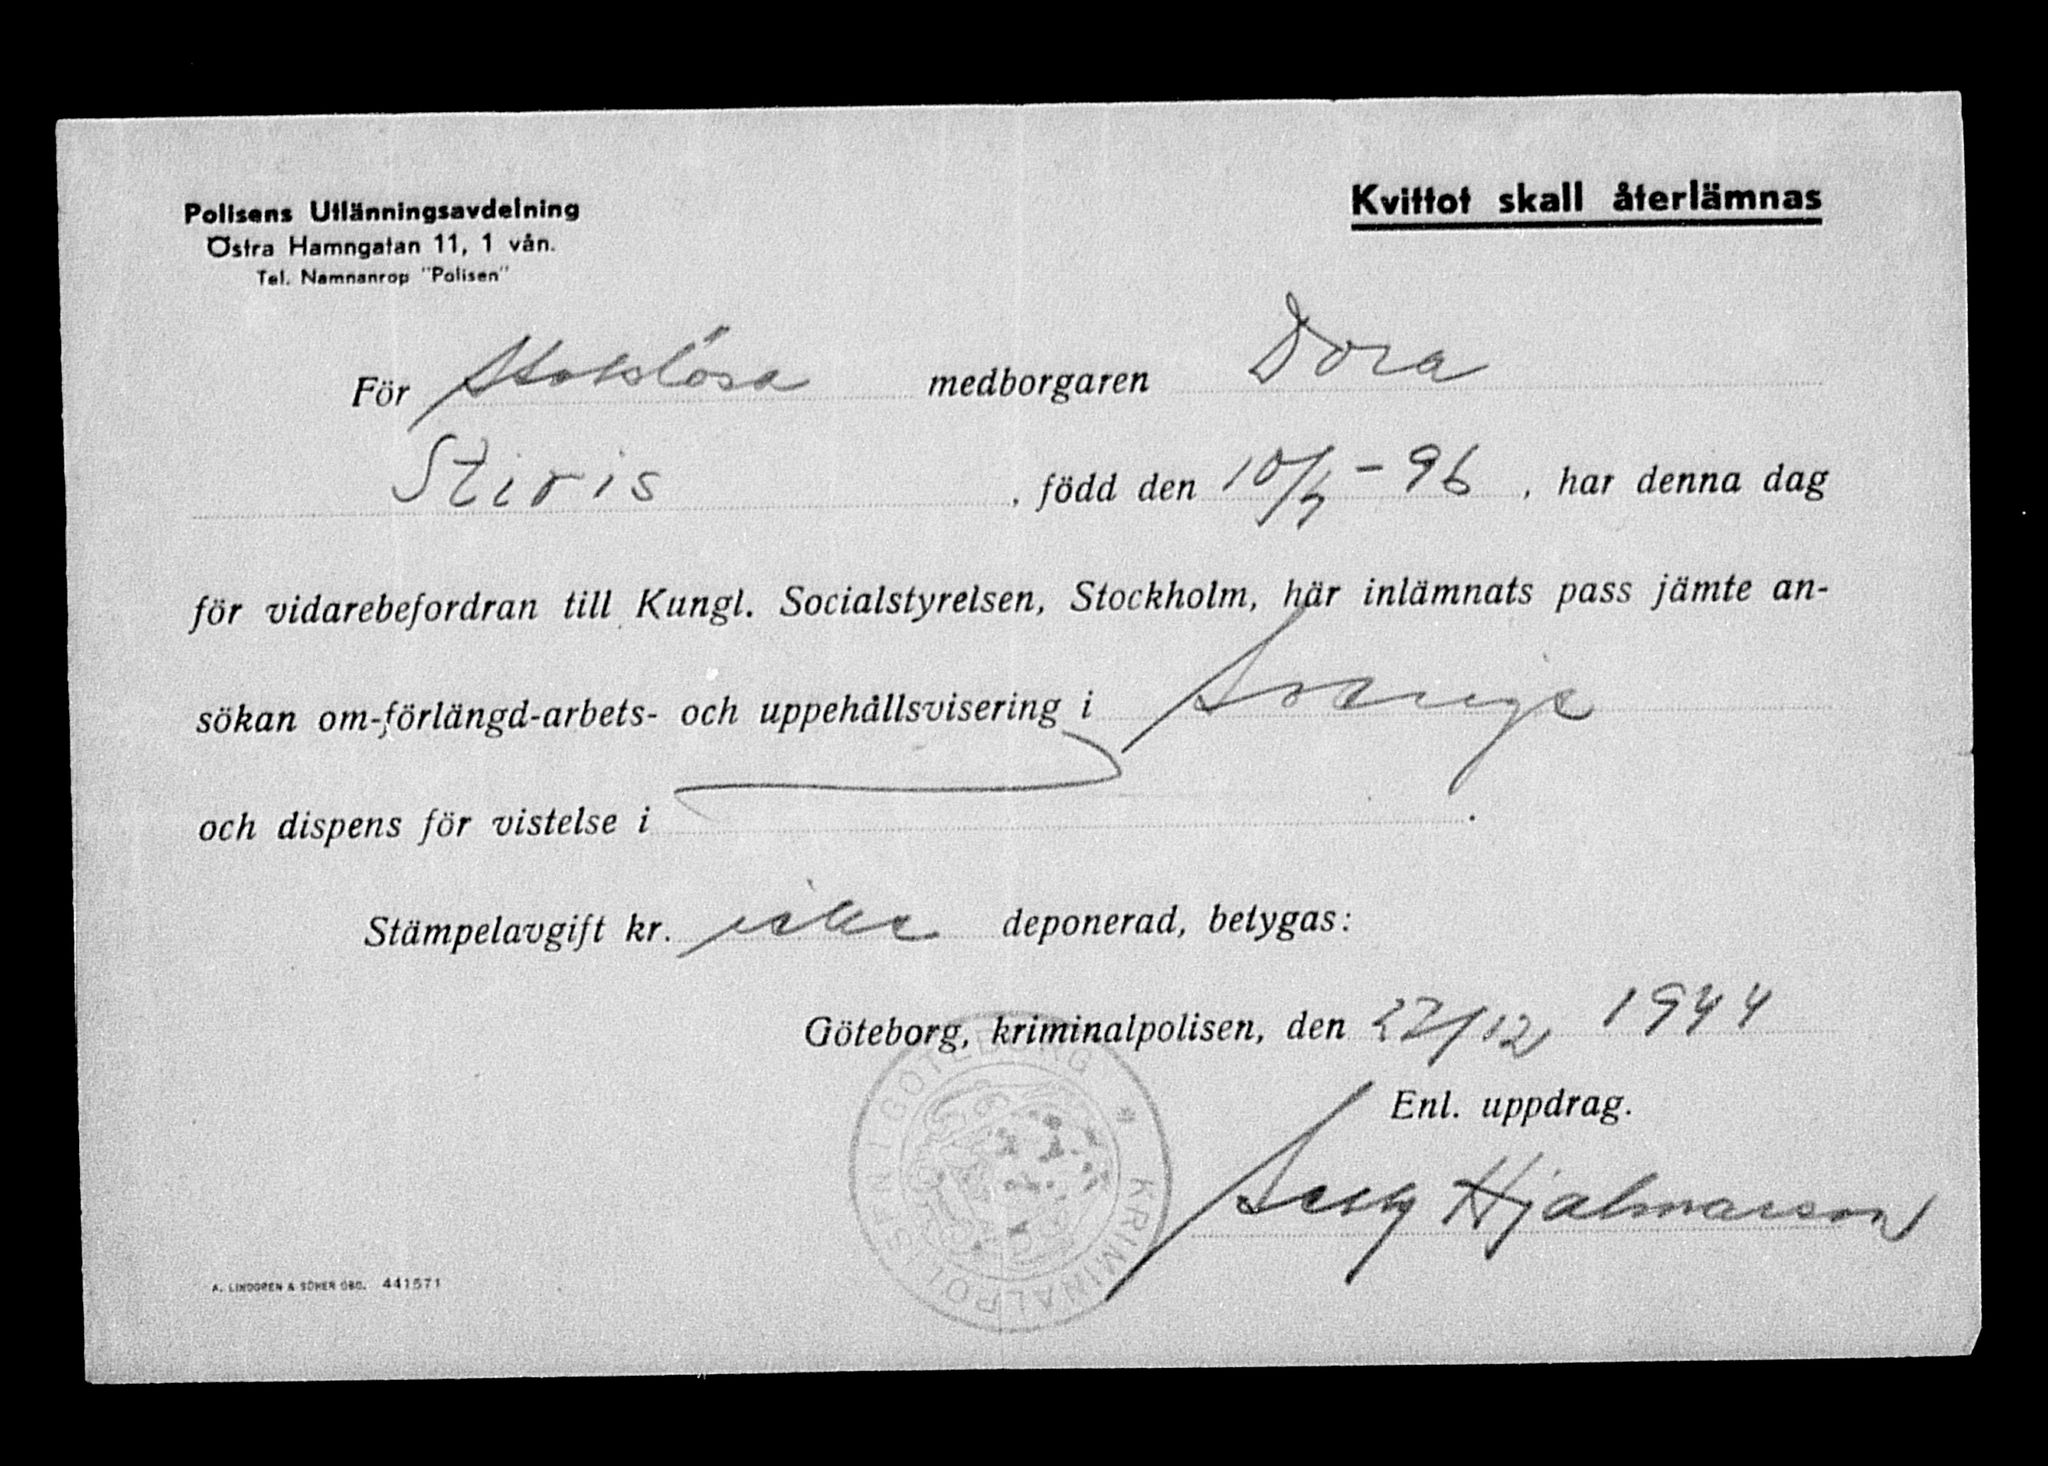 Polisens Utlänningsavdelning
Östra Hamngatan 11, 1 vån.
Tel. Namnanrop "Polisen"
Kvittot skall återlämnas
För medborgaren Dora
Stiris, född den 10/5 - 96, har denna dag
för vidarebefordran till Kungl. Socialstyrelsen, Stockholm, här inlämnats pass jämte an-
sökan om-förlängd-arbets- och uppehållsvisering i Sverige
och dispens för vistelse i .
Stämpelavgift kr. icke deponerad, betygas:
Göteborg, kriminalpolisen, den 27/12 1944
Enl. uppdrag.
Hjalmarson
KRIMINALPOLISEN I GÖTEBORG *
A. LINDGREN & SÖNER GBG. 441571